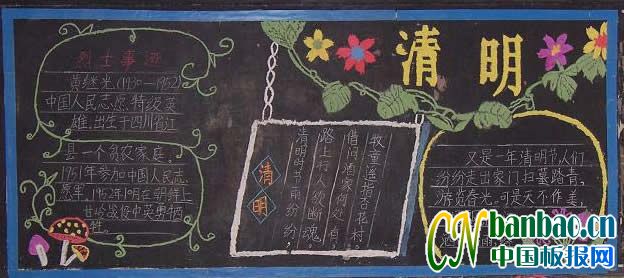 烈士事迹
黄继光(1930—1952)
中国人民志愿特级英
雄.出生于四川省江
县一个贫农家庭,
1951年参加中国人民志
愿军,1952年10月在朝鲜上
甘岭战役中英勇牺
牲.
清明
清明
清明时节雨纷纷,
路上行人欲断魂
借问酒家何处有,
牧童遥指杏花村
又是一年清明节,人们
纷纷走出家门扫墓踏青,
游览春光.可是天不作美,
CN banbao.cn
中国板报网